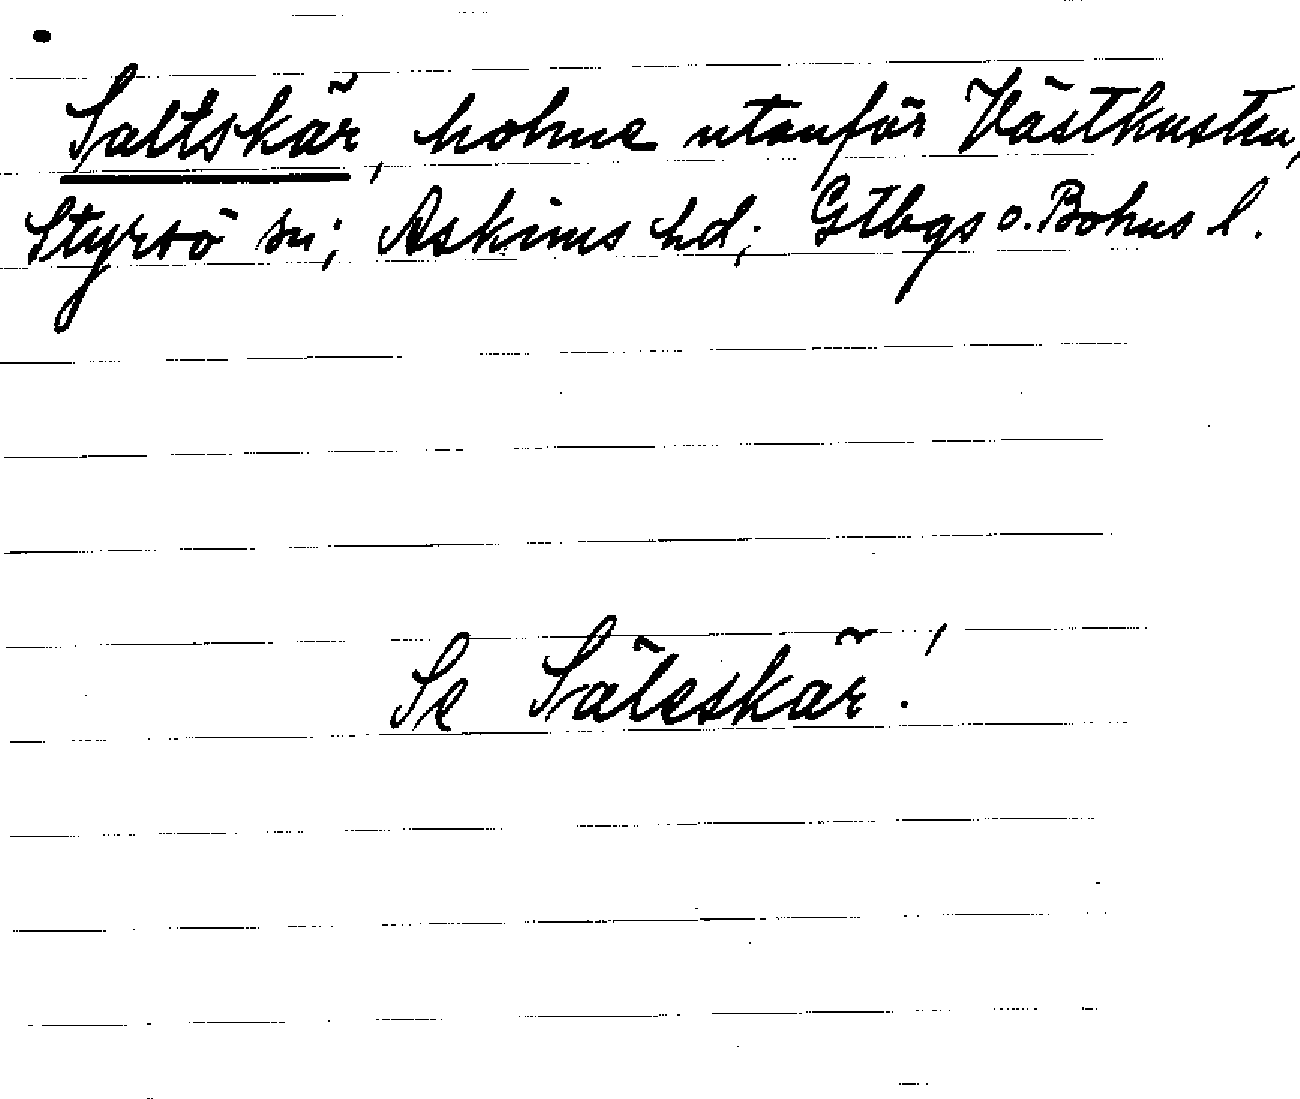 Saltskär, holme utanför Västkusten,
Styrsö sn; Askims hd; Gtbgs o. Bohus l.
Se Säleskär!